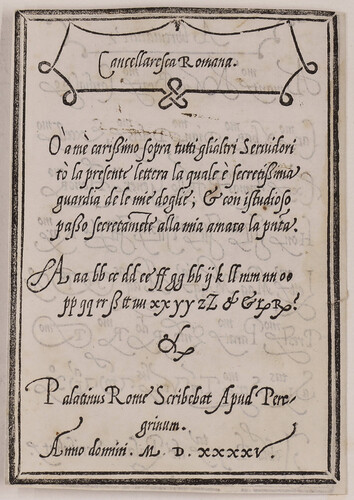 Cancellaresca Romana.
O à mè carißimo sopra tuti glialtri Seruidori
tò la presente lettera la quale è secretißima
guardia de le mie doglie; & con istudioso
paßo secretamẽte alla mia amata la pñta.
A aa bb cc dd ee ff gg bb ij k ll mm nn oo
pp qq rr ß tt uu xx yy zZ &
&
Palatinus Rome Scribebat Apud Pere-
grinum.
Anno domini. M. D. XXXXV.